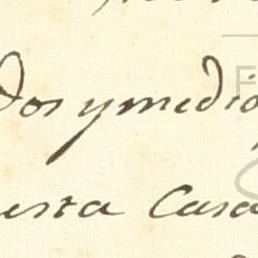 dos y medio
esta Casa